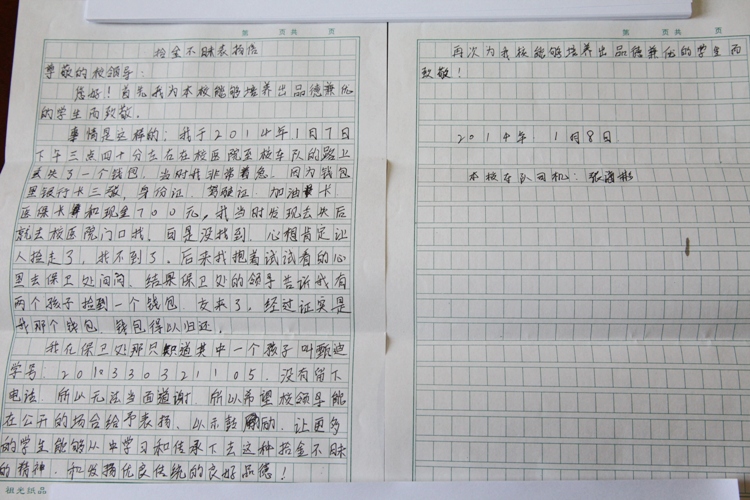 第 页共 页
拾金不昧表扬信
尊敬的校领导:
您好!首先我为本校能够培养出品德兼优
的学生而致敬。
事情是这样的:我于2014年1月7日
下午三点四十分左右在校医院至校车队的路上
丢失了一个钱包。当时我非常着急。因为钱包
里银行卡三张,身份证、驾驶证、加油卡
医保卡 和现金700元,我当时发现丢失后
就去校医院门口找。但是没找到。心想肯定让
人捡走了,找不到了。后来我抱着试试看的心
里去保卫处问问。结果保卫处的领导告诉我有
两个孩子捡到一个钱包。交来了。经过证实是
我那个钱包。钱包得以归还。
我在保卫处那只知道其中一个孩子叫甄
学号:201333021105。没有留下
电话。所以无法当面道谢。所以希望校领导能
在公开的场合给予表扬。以示鼓励。让更多
的学生能够从中学习和传承下去这种拾金不昧
的精神。和发扬优良传统的良好品德!
祖光纸品
第 页共 页
再次为我校能够培养出品德兼优的学生而
致敬!
2014年 1月8日
本校车队司机:张